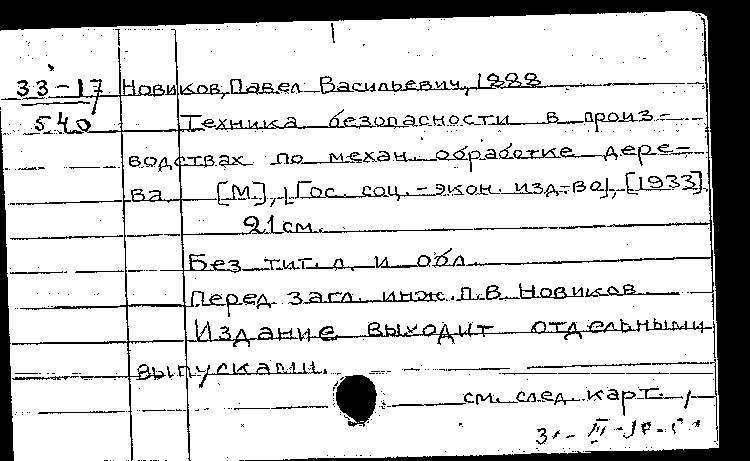 33-17 Новиков, Павел Васильевич, 1888
540 Техника безопасности в произ-
водствах по механ. обработке дере-
ва. [М.], [Гос. соц.-экон. изд-во], [1933].
21 см.
Без тит. л. и обл.
Перед загл. инж. П.В. Новиков
Издание выходит отдельными
выпусками.
см. след. карт.